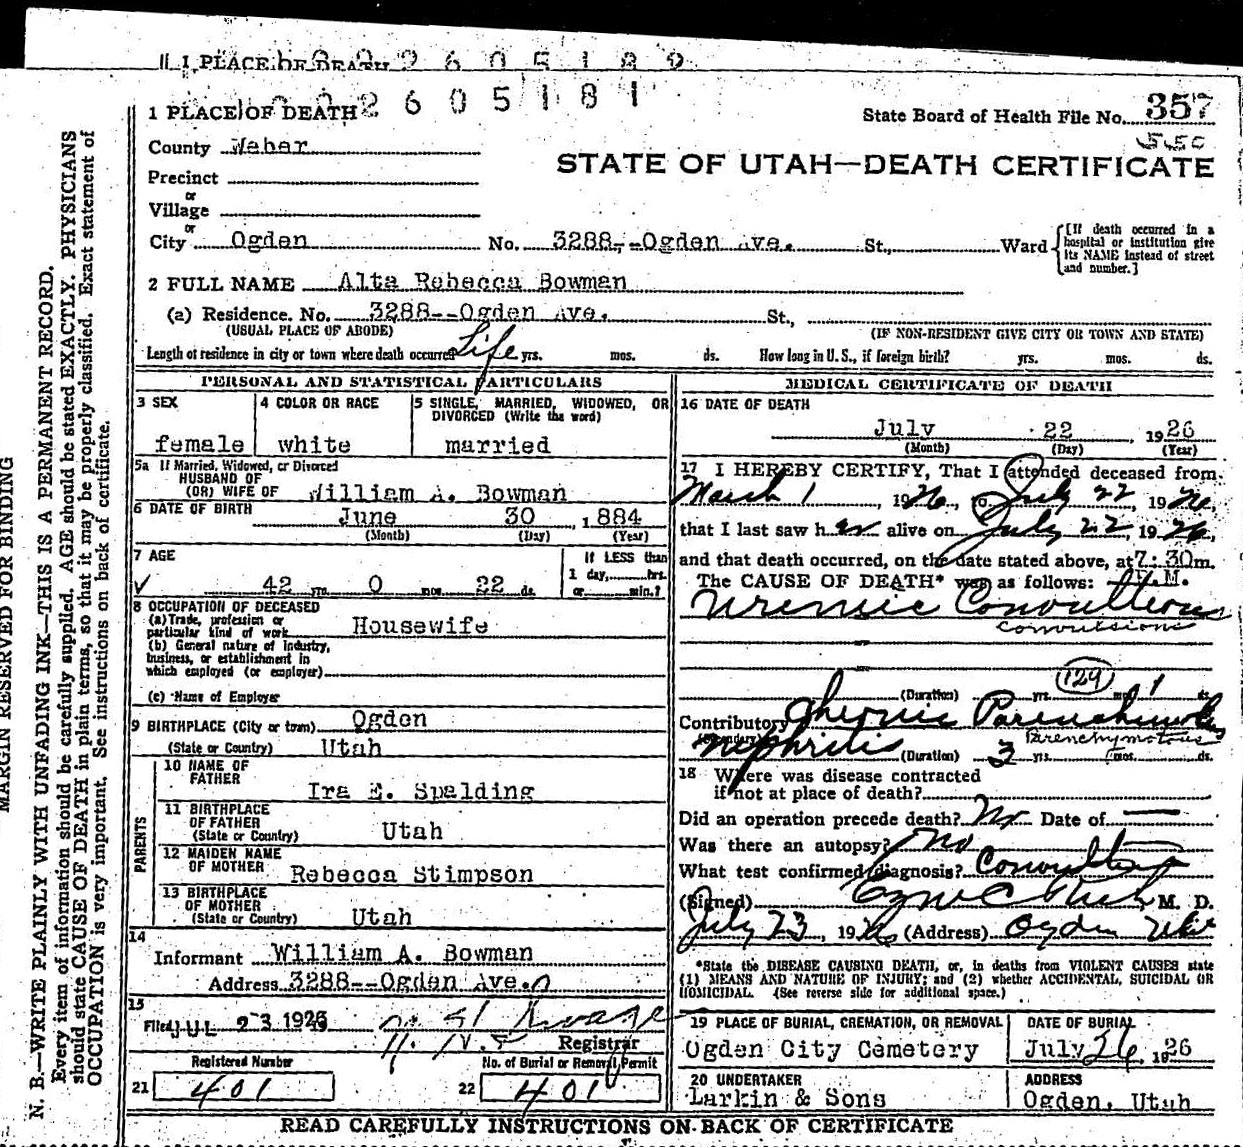 1 PLACE OF DEATH 2 6 0 5 1 8 2
2 6 0 5 1 8 1
1 PLACE OF DEATH
State Board of Health File No. 357
550
County Weber
STATE OF UTAH—DEATH CERTIFICATE
Precinct
or
Village
or
City Ogden No. 3288--Ogden Ave. St., Ward
[If death occurred in a
hospital or institution give
its NAME instead of street
and number.]
2 FULL NAME Alta Rebecca Bowman
(a) Residence. No. 3288--Ogden Ave. St.,
(USUAL PLACE OF ABODE) (IF NON-RESIDENT GIVE CITY OR TOWN AND STATE)
Length of residence in city or town where death occurred Life yrs. mos. ds. How long in U. S., if foreign birth? yrs. mos. ds.
PERSONAL AND STATISTICAL PARTICULARS
3 SEX
female
4 COLOR OR RACE
white
5 SINGLE, MARRIED, WIDOWED, OR
DIVORCED (Write the word)
married
5a If Married, Widowed, or Divorced
HUSBAND OF
(OR) WIFE OF William A. Bowman
6 DATE OF BIRTH June 30, 1884
(Month) (Day) (Year)
7 AGE
42 yrs. 0 mos. 22 ds.
If LESS than
1 day, hrs.
or min.?
8 OCCUPATION OF DECEASED
(a) Trade, profession or
particular kind of work Housewife
(b) General nature of industry,
business, or establishment in
which employed (or employer)
(c) Name of Employer
9 BIRTHPLACE (City or town) Ogden
(State or Country) Utah
PARENTS
10 NAME OF
FATHER Ira E. Spalding
11 BIRTHPLACE
OF FATHER
(State or Country) Utah
12 MAIDEN NAME
OF MOTHER Rebecca Stimpson
13 BIRTHPLACE
OF MOTHER
(State or Country) Utah
14
Informant William A. Bowman
Address 3288--Ogden Ave.
15
Filed JUL 23 1926
Registrar
Registered Number
21 401
No. of Burial or Removal Permit
22 401
MEDICAL CERTIFICATE OF DEATH
16 DATE OF DEATH
July 22, 1926
(Month) (Day) (Year)
17 I HEREBY CERTIFY, That I attended deceased from
March 1, 1926, to July 22, 1926,
that I last saw her alive on July 22, 1926,
and that death occurred, on the date stated above, at 7:30 m.
The CAUSE OF DEATH* was as follows: M.
Uremic Convultions
Convulsions
129
(Duration) yrs. mos. 1 ds.
Contributory Chronic Parenchimotus
(Secondary) Parenchymotous
Nephritis (Duration) 3 yrs. mos. ds.
18 Where was disease contracted
if not at place of death?
Did an operation precede death? No Date of —
Was there an autopsy? no
What test confirmed diagnosis?
(Signed) M. D.
July 23, 1926 (Address) Ogden Utah
*State the DISEASE CAUSING DEATH, or, in deaths from VIOLENT CAUSES state
(1) MEANS AND NATURE OF INJURY; and (2) whether ACCIDENTAL, SUICIDAL OR
HOMICIDAL. (See reverse side for additional space.)
19 PLACE OF BURIAL, CREMATION, OR REMOVAL
Ogden City Cemetery
DATE OF BURIAL
July 26 1926
20 UNDERTAKER
Larkin & Sons
ADDRESS
Ogden, Utah
READ CAREFULLY INSTRUCTIONS ON BACK OF CERTIFICATE
MARGIN RESERVED FOR BINDING
N. B.—WRITE PLAINLY WITH UNFADING INK—THIS IS A PERMANENT RECORD.
Every item of information should be carefully supplied. AGE should be stated EXACTLY. PHYSICIANS
should state CAUSE OF DEATH in plain terms, so that it may be properly classified. Exact statement of
OCCUPATION is very important. See instructions on back of certificate.